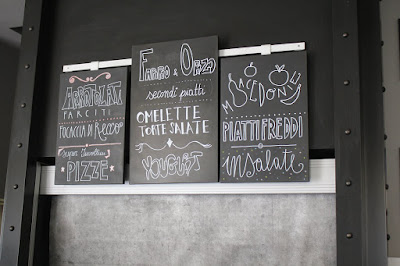 ARROTOLATI
FARCITI
FOCACCIA DI Recco
PIZZE
FARRO & ORZO
secondi piatti
OMELETTE
TORTE SALATE
YOGURT
MACEDONIE
PIATTI FREDDI
insalate